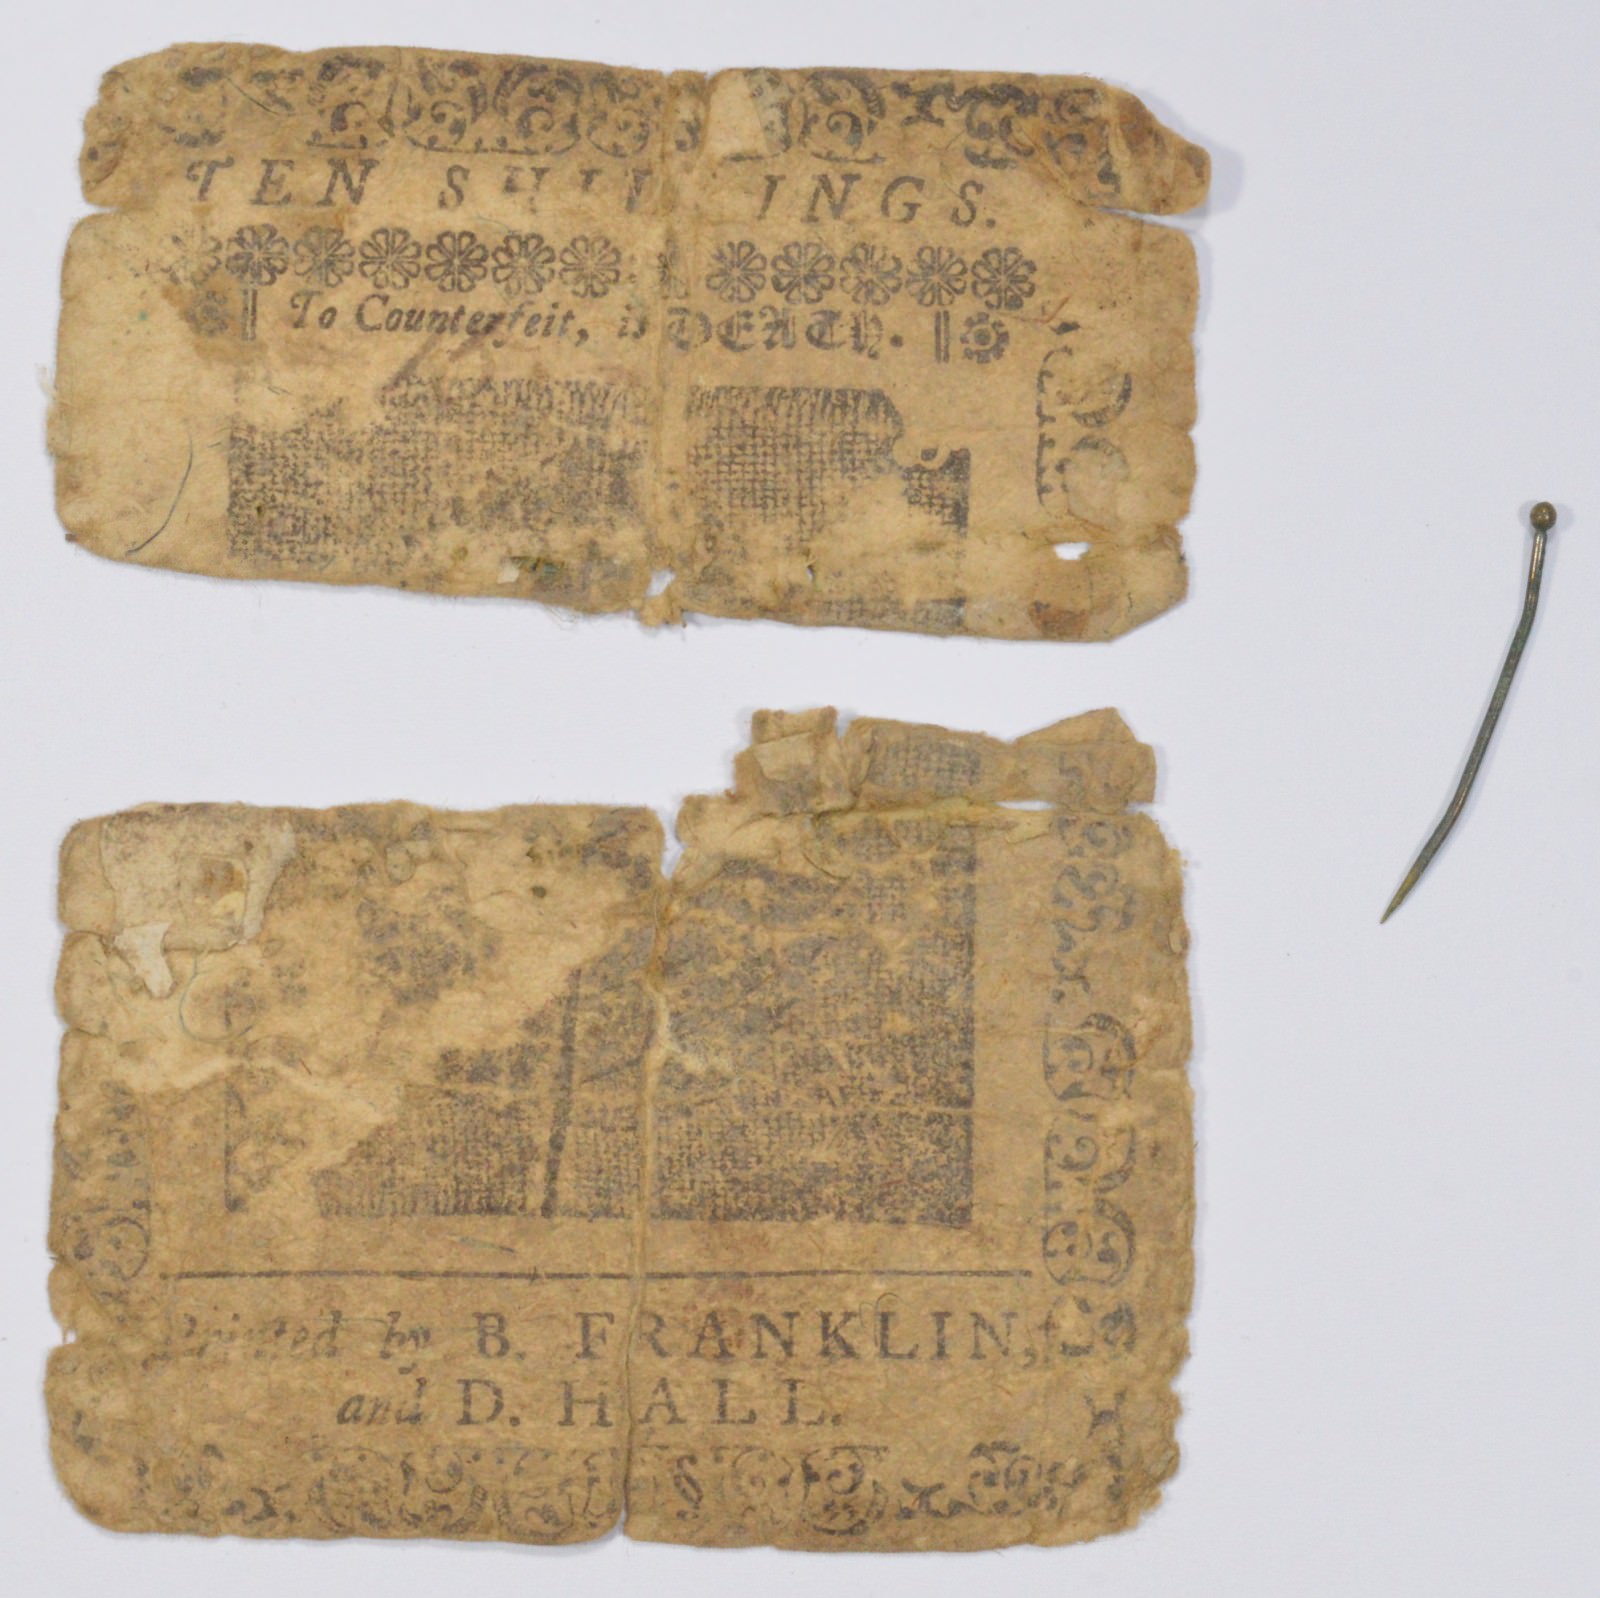 TEN SHILLINGS.
To Counterfeit, is DEATH.
Printed by B. FRANKLIN,
and D. HALL.